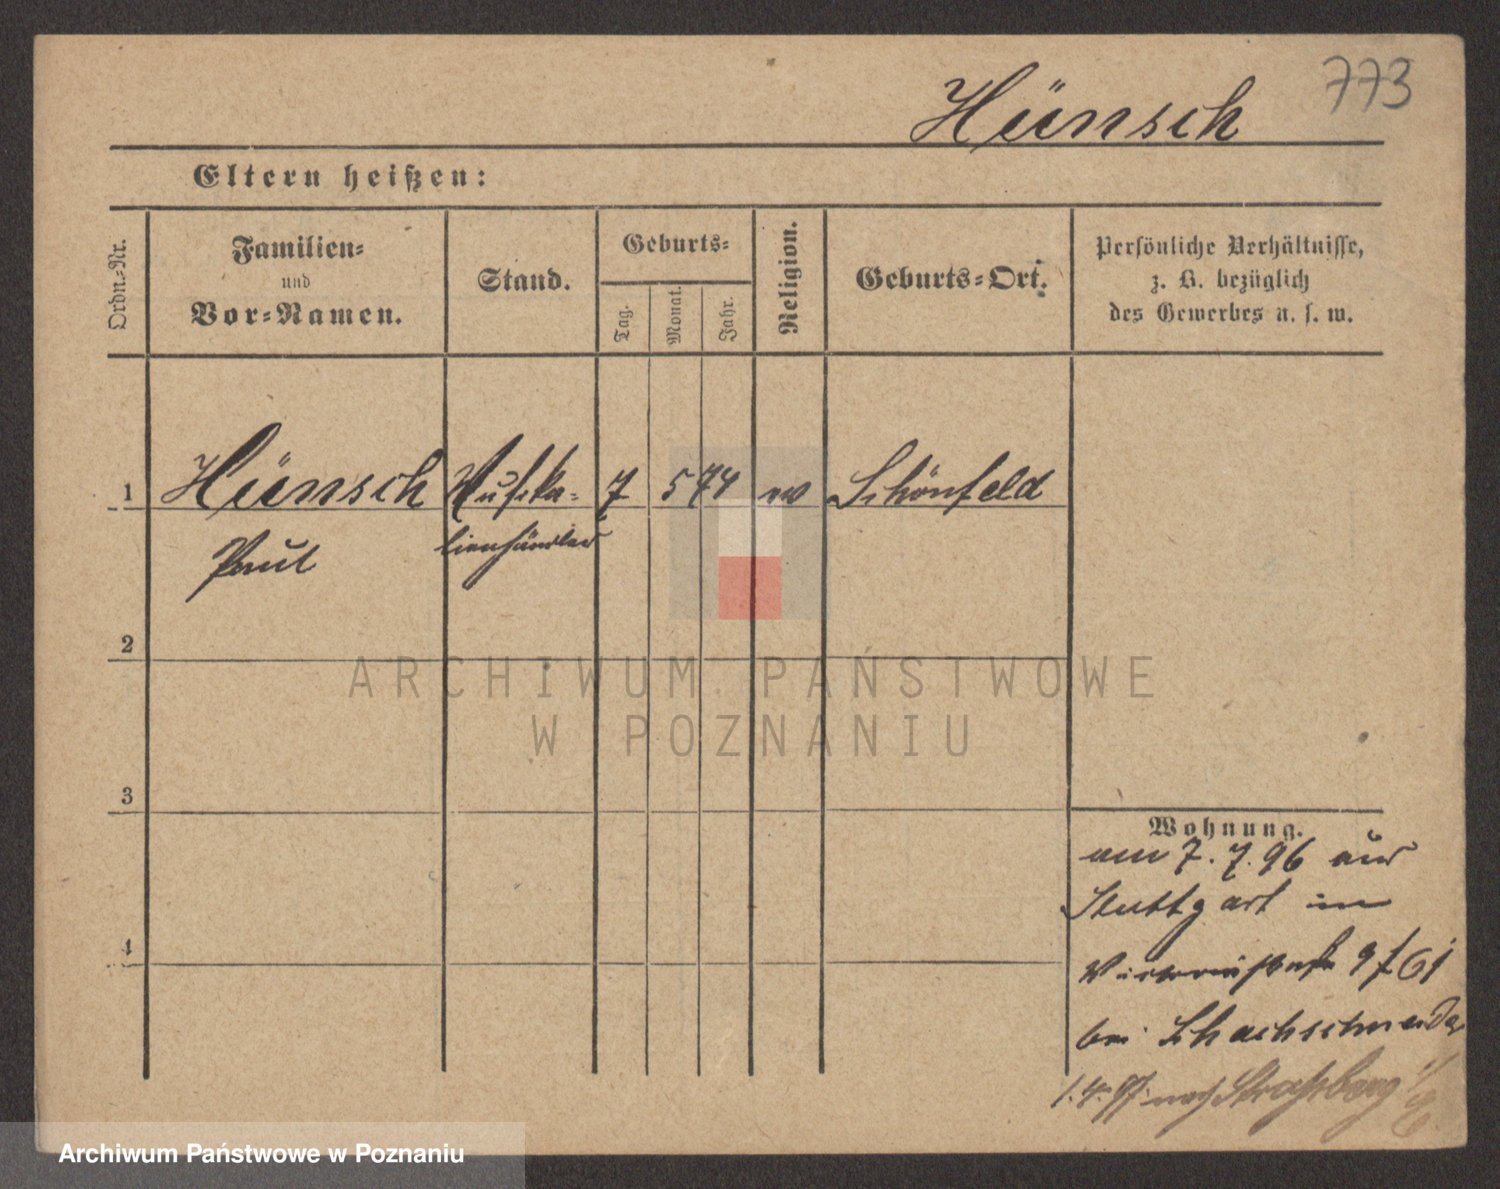 773
Hünsch
Eltern heißen:
Ordn.-Nr.
Familien-
und
Vor-Namen.
Stand.
Geburts-
Tag.
Monat.
Jahr.
Religion.
Geburts-Ort.
Persönliche Verhältnisse,
z. B. bezüglich
des Gewerbes u. s. w.
1 Hünsch Musika- 7 5 74 Schönfeld
Paul lienhändler
2
3
4
Wohnung.
am 7. 7. 96 aus
Stuttgart in
9
bei
1. 4. 97 nach Straßburg
ARCHIWUM PAŃSTWOWE
W POZNANIU
Archiwum Państwowe w Poznaniu